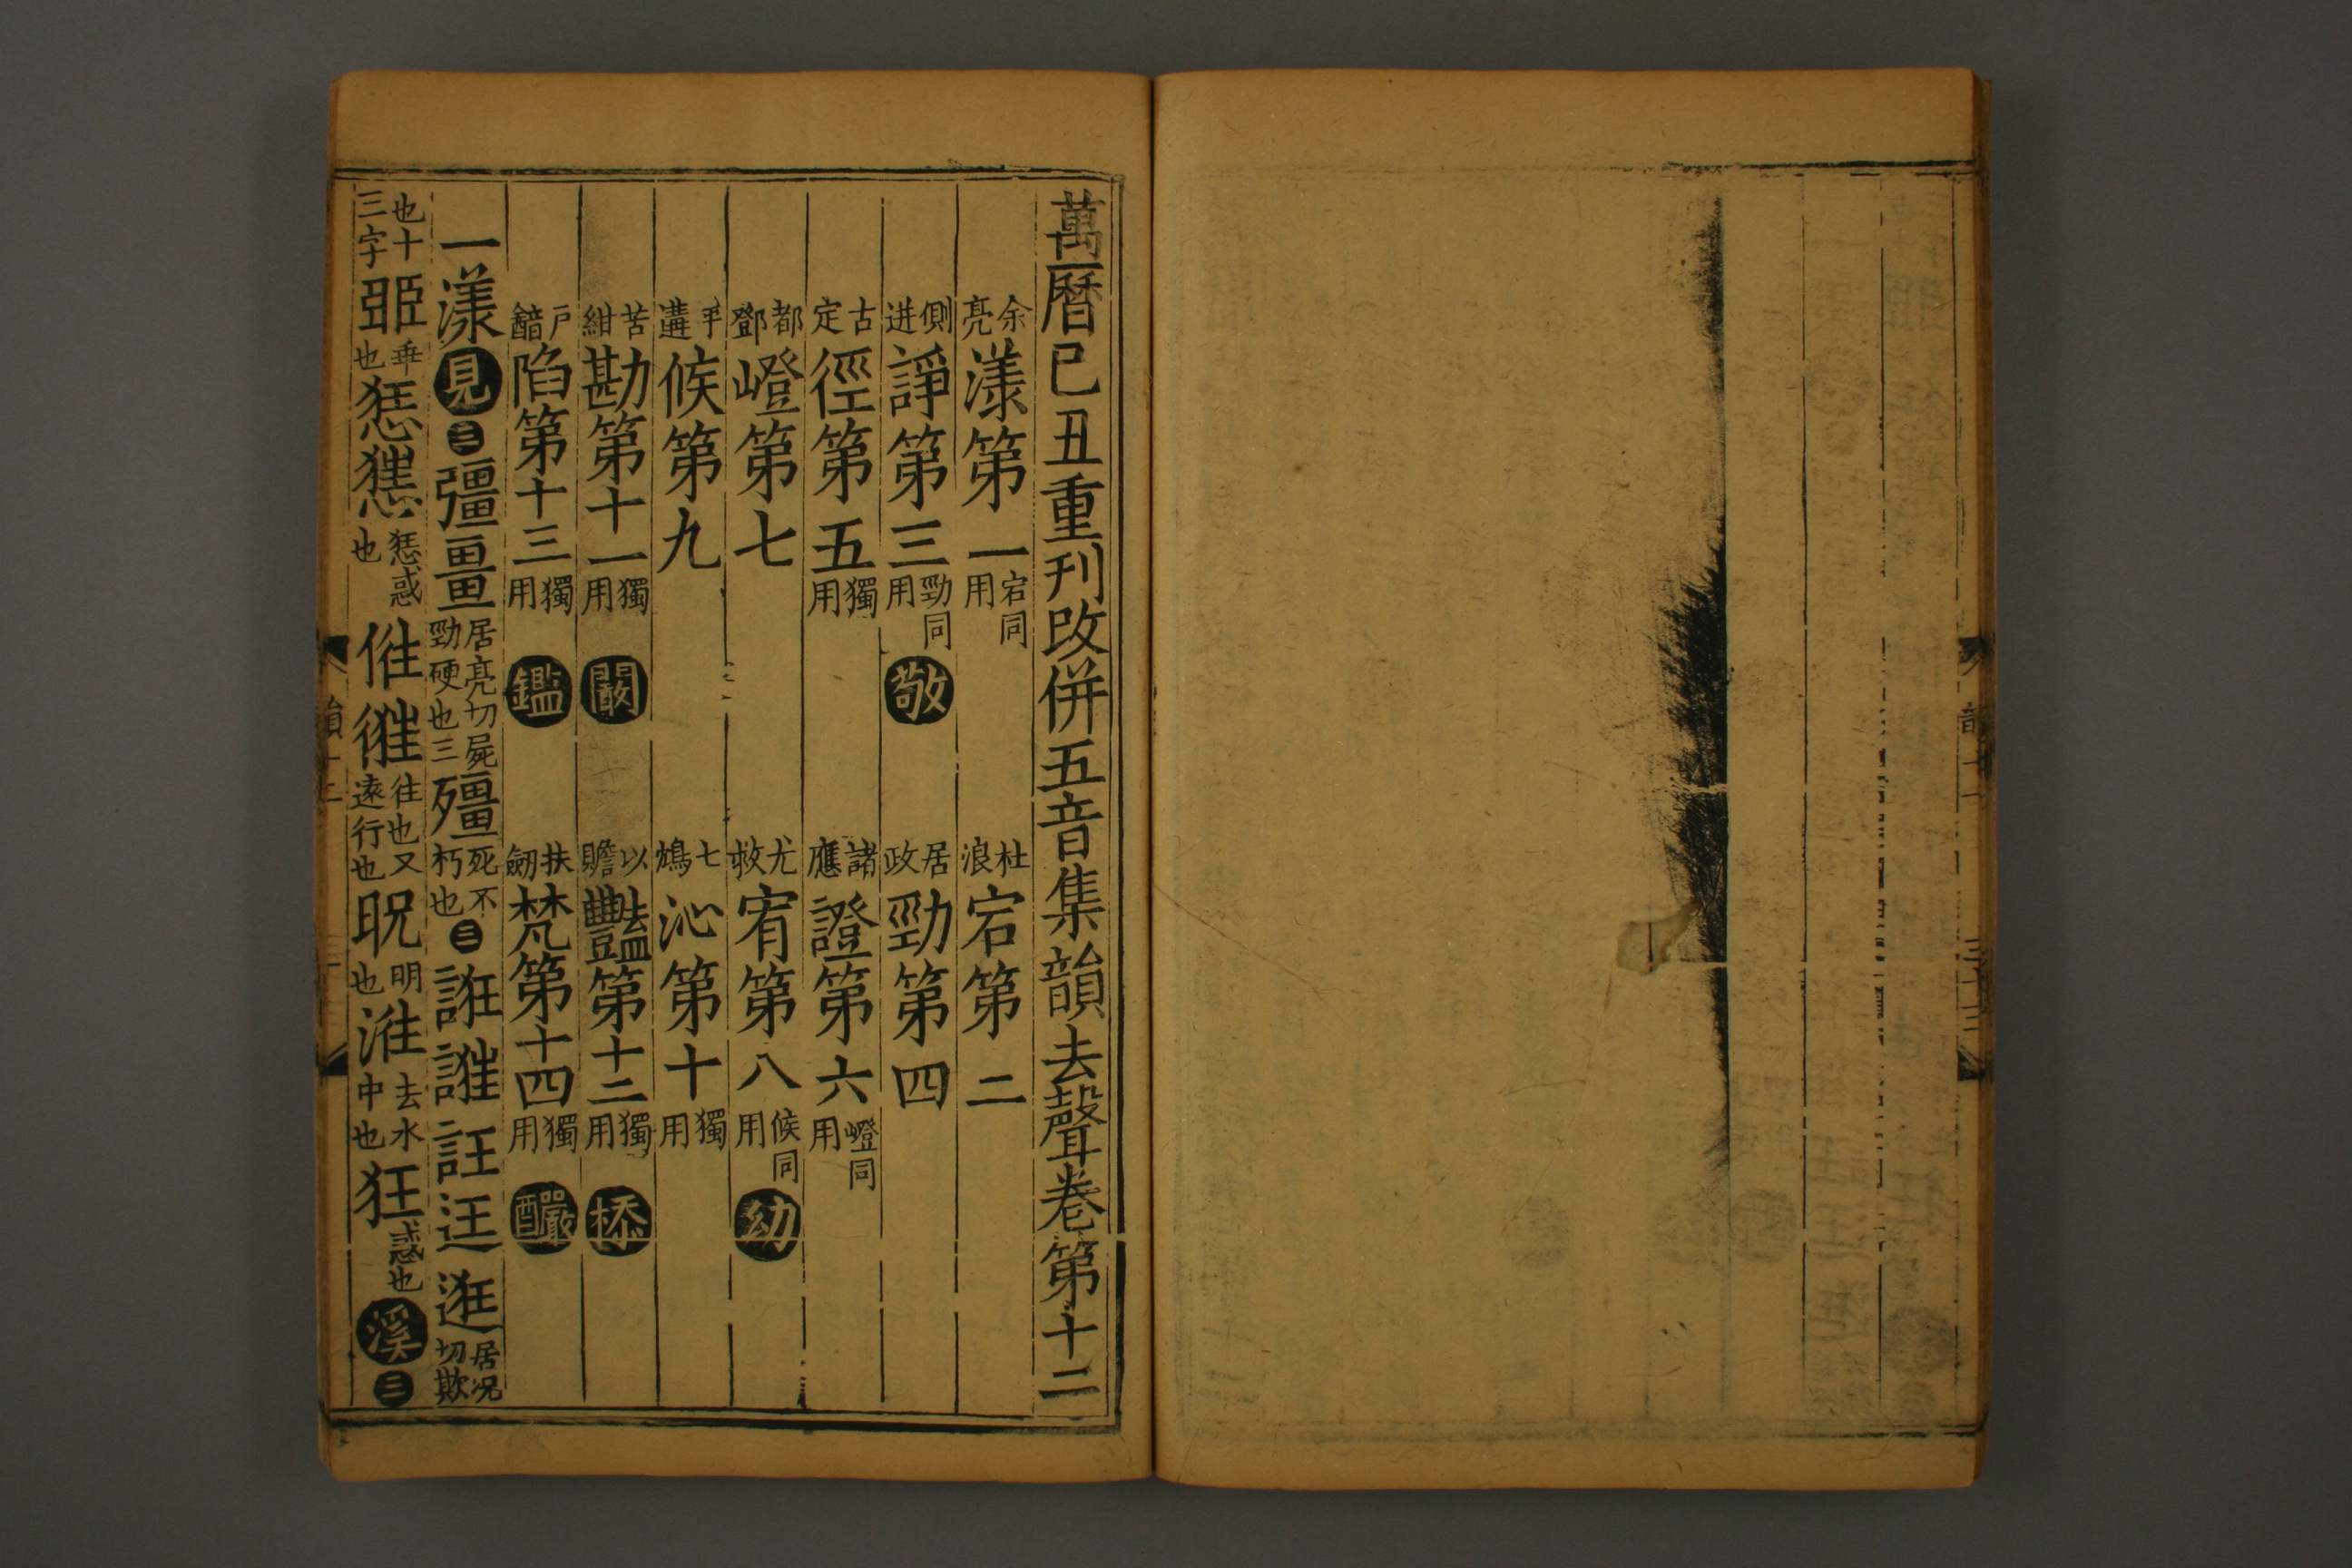 萬曆己丑重刊改併五音集韻去聲卷第十二
余亮漾第一宕同用 杜浪宕第二
側迸諍第三勁同用敬 居政勁第四
古定徑第五獨用 諸應證第六嶝同用
都鄧嶝第七 尤救宥第八候同用幼
候第九 七鴆沁第十獨用
苦紺勘第十一獨用闞 以贍豔第十二獨用㮇
戶韽陷第十三獨用鑑 扶劒梵第十四獨用釅
一漾見三彊畺居亮切屍勁硬也三殭死不朽也三誑
逛居况切欺
也十三字 垂也 惑也 往也又遠行也 明也 去水中也狂惑也溪三